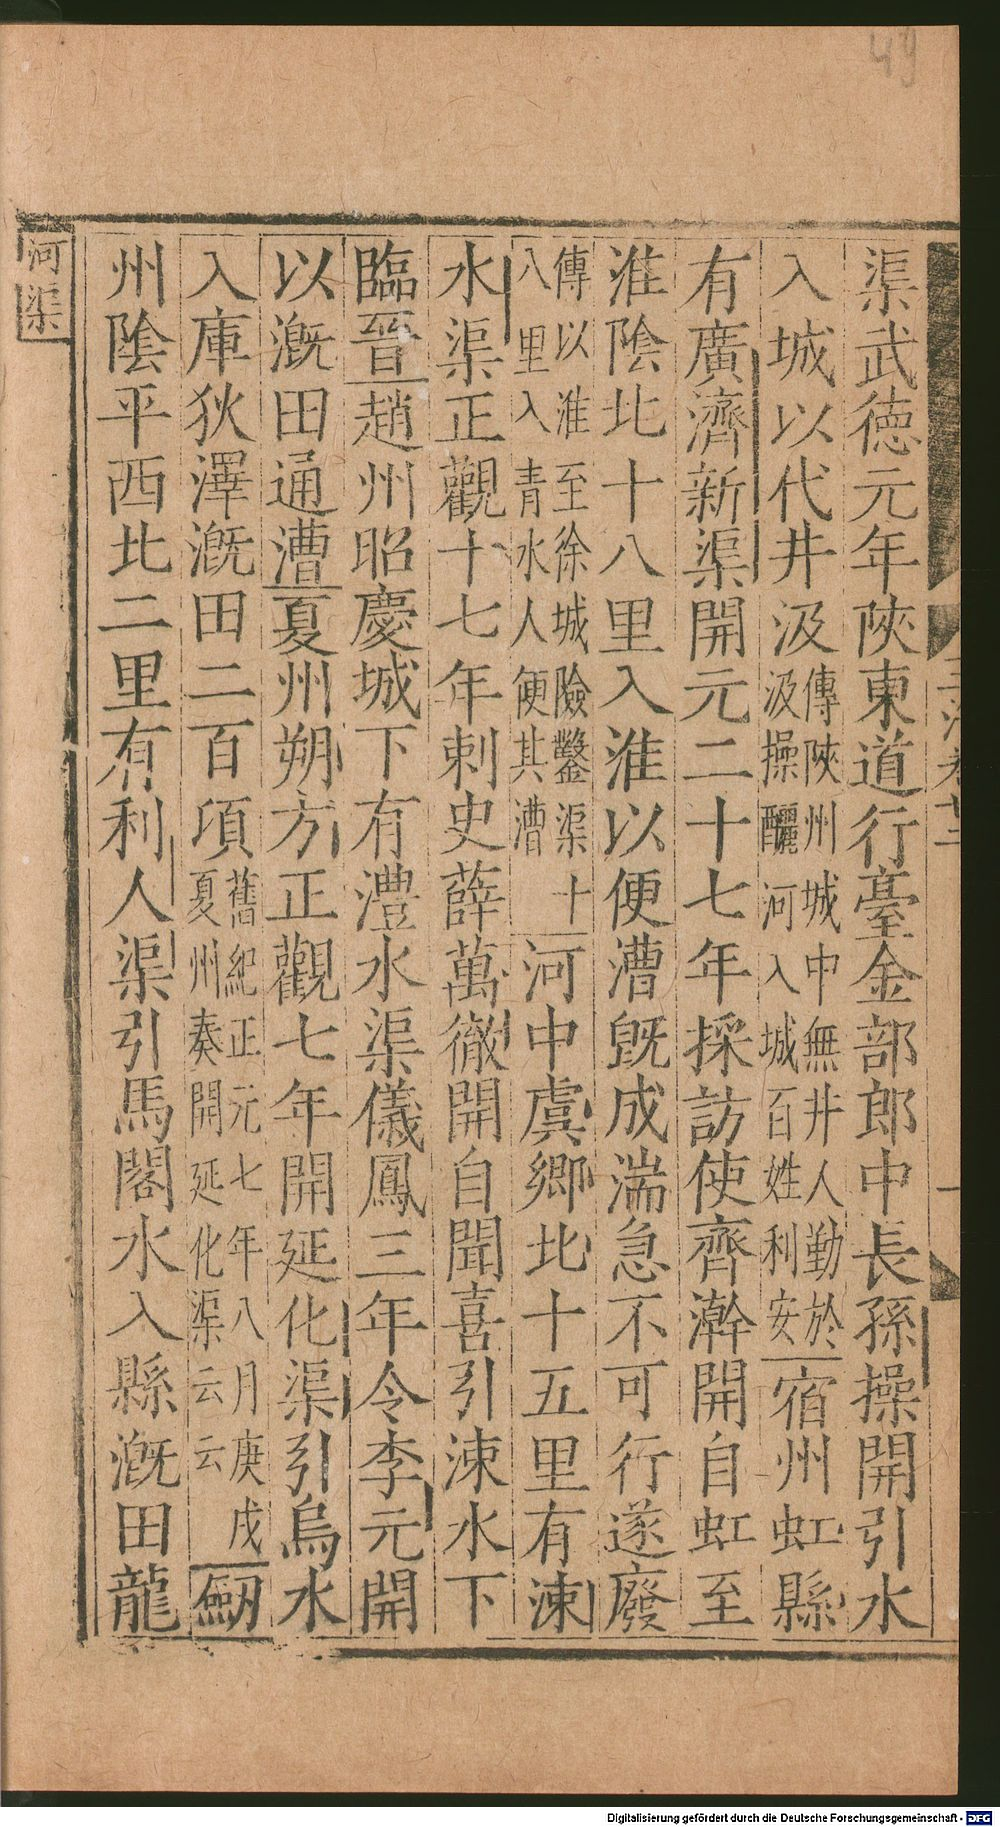 49
渠武徳元年陝東道行臺金部郎中長孫操開引水
入城以代井汲傳陝州城中無井人勤於汲操釃河入城百姓利安宿州虹縣
有廣濟新渠開元二十七年採訪使齊澣開自虹至
淮陰北十八里入淮以便漕旣成湍急不可行遂廢
傳以淮至徐城險鑿渠十八里入青水人便其漕河中虞鄉北十五里有涑
水渠正觀十七年刺史薛萬徹開自聞喜引涑水下
臨晉趙州昭慶城下有澧水渠儀鳳三年令李元開
以漑田通漕夏州朔方正觀七年開延化渠引烏水
入庫狄澤漑田二百項舊紀正元七年八月庚戌夏州奏開延化渠云云劒
州陰平西北二里有利人渠引馬閣水入縣漑田龍
河渠
Digitalisierung gefördert durch die Deutsche Forschungsgemeinschaft - DFG